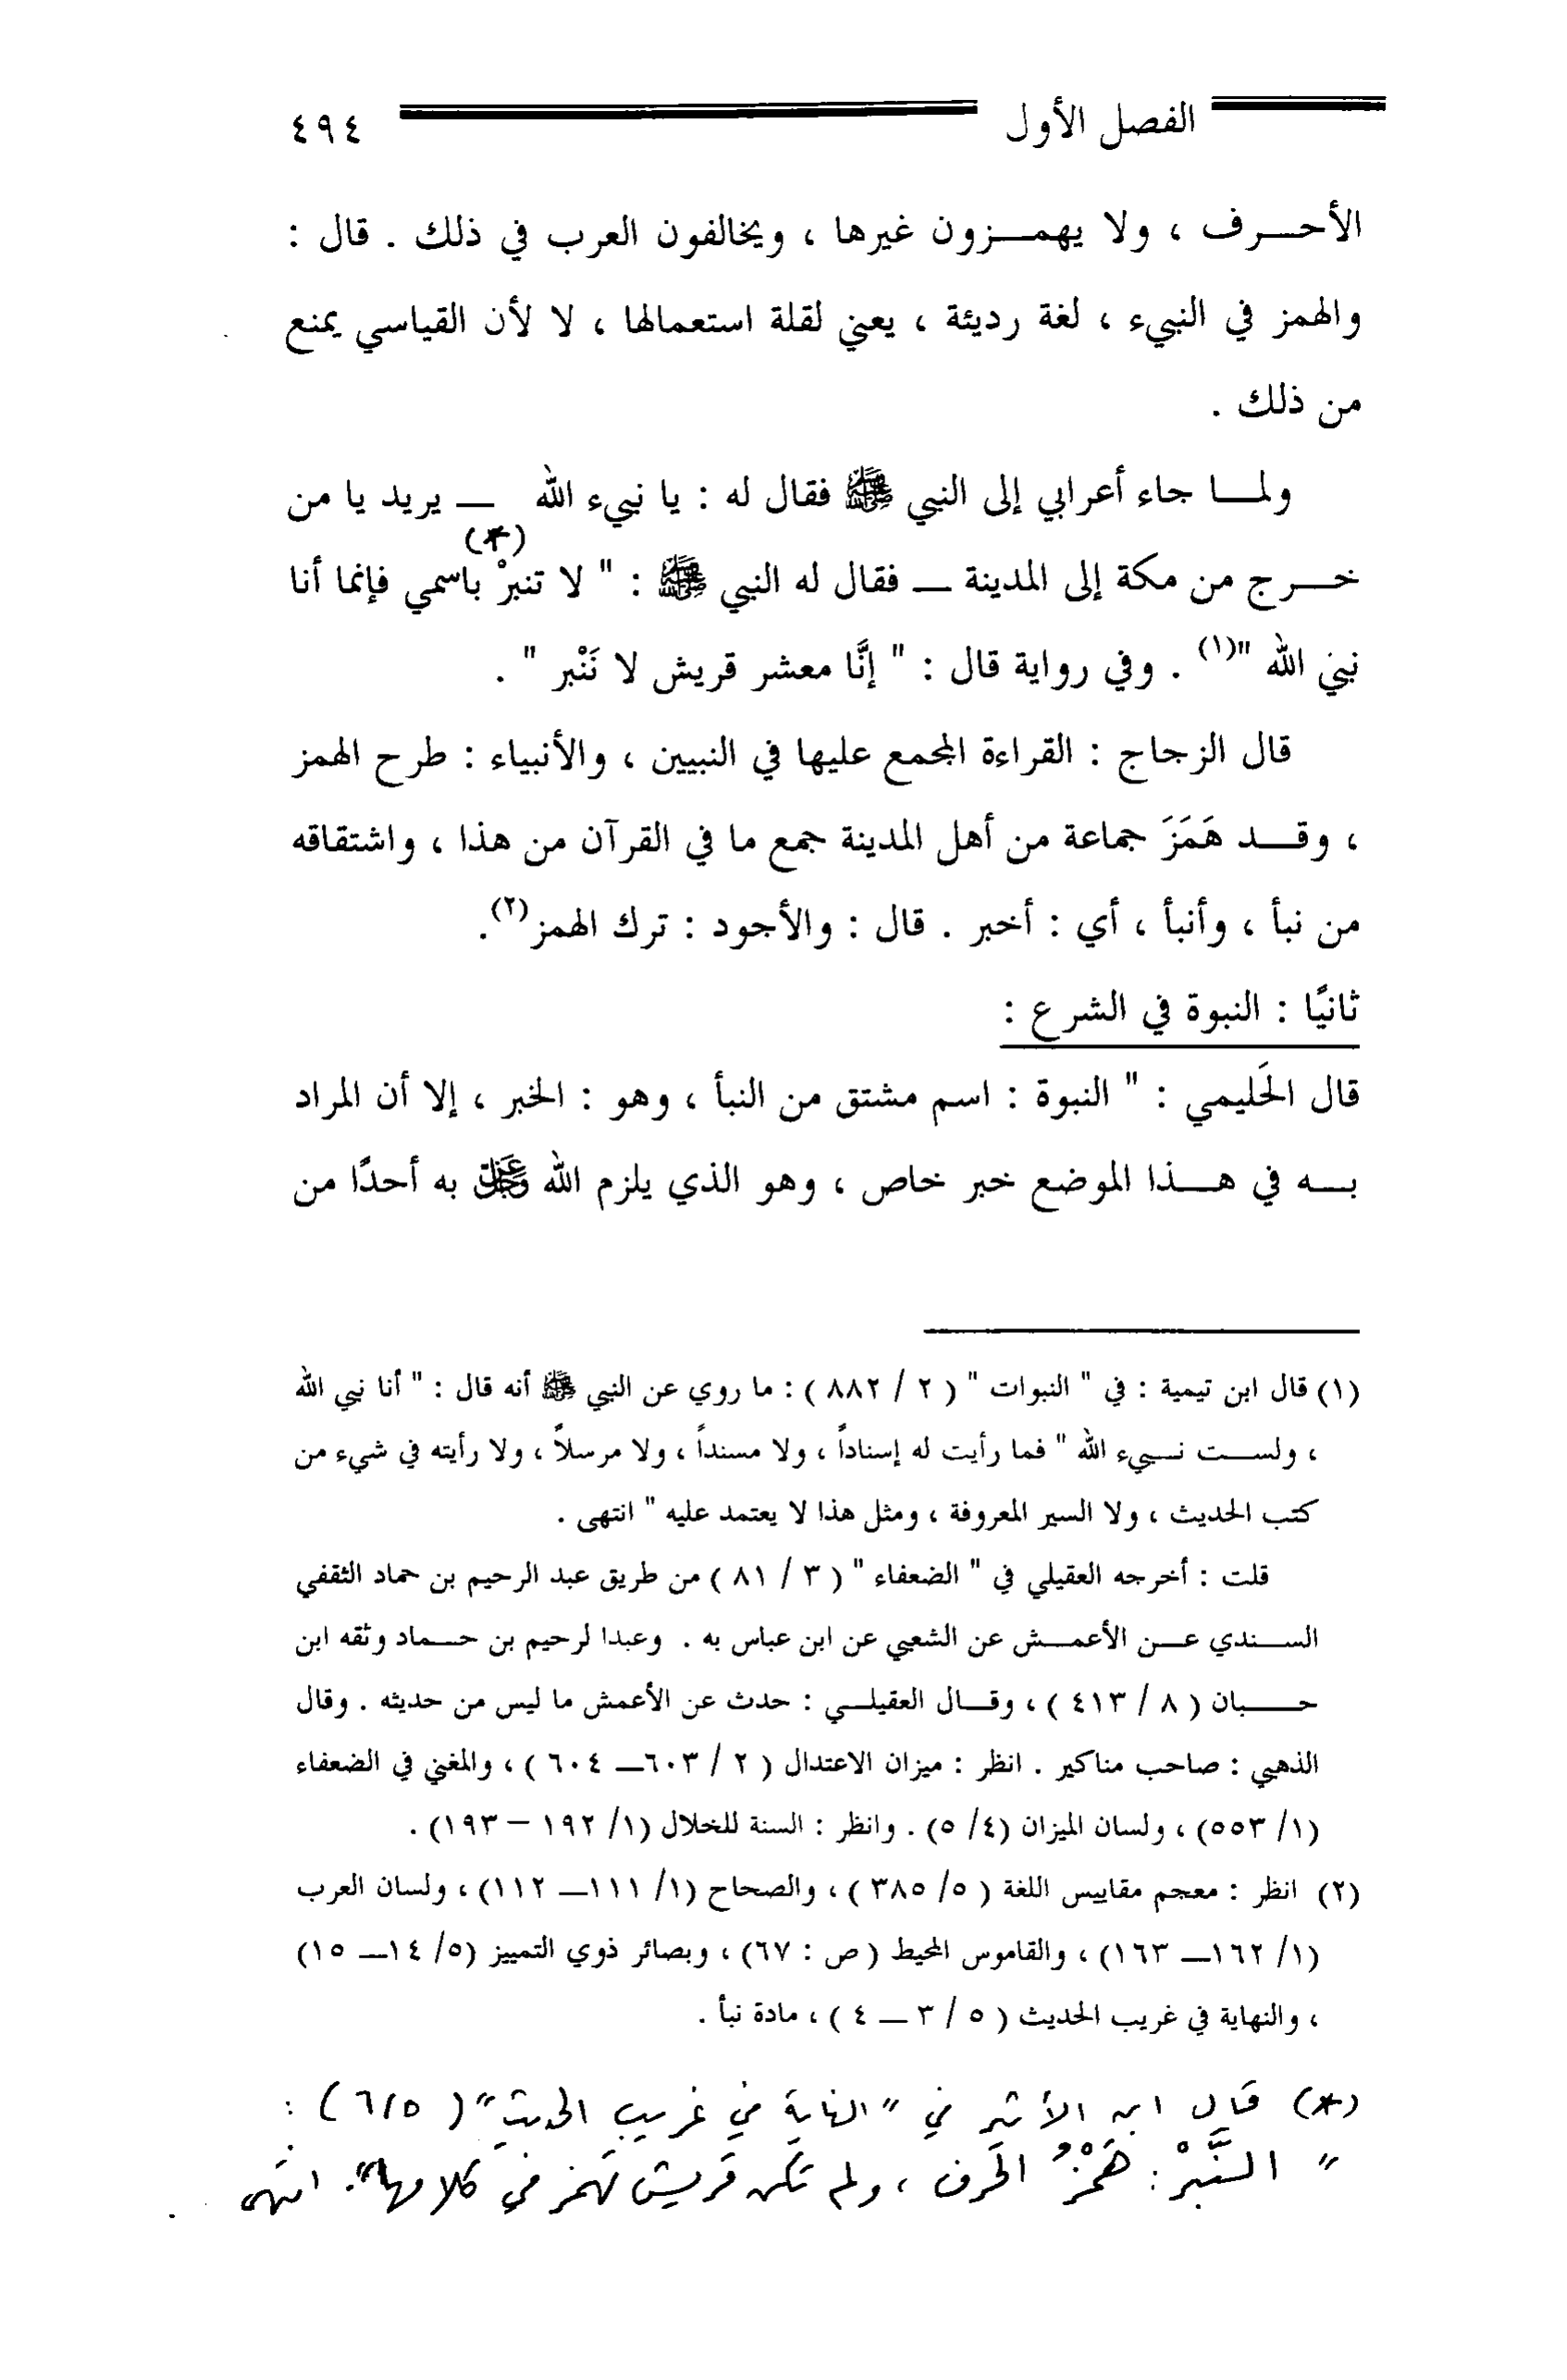 الفصل الأول ٤٩٤
الأحـــرف ، ولا يهمـــزون غيرها ، ويخالفون العرب في ذلك . قال :
والهمز في النبيء ، لغة رديئة ، يعني لقلة استعمالها ، لا لأن القياسي يمنع
من ذلك .
ولمـــا جاء أعرابي إلى النبي ﷺ فقال له : يا نبيء الله ــ يريد يا من
خـــرج من مكة إلى المدينة ــ فقال له النبي ﷺ : " لا تنبرْ (*) باسمي فإنما أنا
نبي الله "(١) . وفي رواية قال : " إنَّا معشر قريش لا نَنْبر " .
قال الزجاج : القراءة المجمع عليها في النبيين ، والأنبياء : طرح الهمز
، وقـــد هَمَزَ جماعة من أهل المدينة جمع ما في القرآن من هذا ، واشتقاقه
من نبأ ، وأنبأ ، أي : أخبر . قال : والأجود : ترك الهمز(٢).
ثانيًا : النبوة في الشرع :
قال الحَليمي : " النبوة : اسم مشتق من النبأ ، وهو : الخبر ، إلا أن المراد
بـــه في هـــذا الموضع خبر خاص ، وهو الذي يلزم الله عَزَّ وَجَلَّ به أحدًا من
(١) قال ابن تيمية : في " النبوات " ( ٢ / ٨٨٢ ) : ما روي عن النبي ﷺ أنه قال : " أنا نبي الله
، ولســـت نـــبيء الله " فما رأيت له إسناداً ، ولا مسنداً ، ولا مرسلاً ، ولا رأيته في شيء من
كتب الحديث ، ولا السير المعروفة ، ومثل هذا لا يعتمد عليه " انتهى .
قلت : أخرجه العقيلي في " الضعفاء " ( ٣ / ٨١ ) من طريق عبد الرحيم بن حماد الثقفي
الســـندي عـــن الأعمـــش عن الشعبي عن ابن عباس به . وعبدا لرحيم بن حـــماد وثقه ابن
حـــبان ( ٨ / ٤١٣ ) ، وقـــال العقيلـــي : حدث عن الأعمش ما ليس من حديثه . وقال
الذهبي : صاحب مناكير . انظر : ميزان الاعتدال ( ٢ / ٦٠٣ــ ٦٠٤ ) ، والمغني في الضعفاء
(١/ ٥٥٣) ، ولسان الميزان (٤/ ٥) . وانظر : السنة للخلال (١/ ١٩٢ – ١٩٣) .
(٢) انظر : معجم مقاييس اللغة ( ٥/ ٣٨٥ ) ، والصحاح (١/ ١١١ــ ١١٢) ، ولسان العرب
(١/ ١٦٢ــ ١٦٣) ، والقاموس المحيط ( ص : ٦٧) ، وبصائر ذوي التمييز (٥/ ١٤ــ ١٥)
، والنهاية في غريب الحديث ( ٥ / ٣ ــ ٤ ) ، مادة نبأ .
(*) قال ابن الأثير في " النهاية في غريب الحديث " ( ٥/ ٦ ) :
" النَّبْرُ : هَمْزُ الحَرف ، ولم تكن قريش تهمز في كلامها ". انتهى